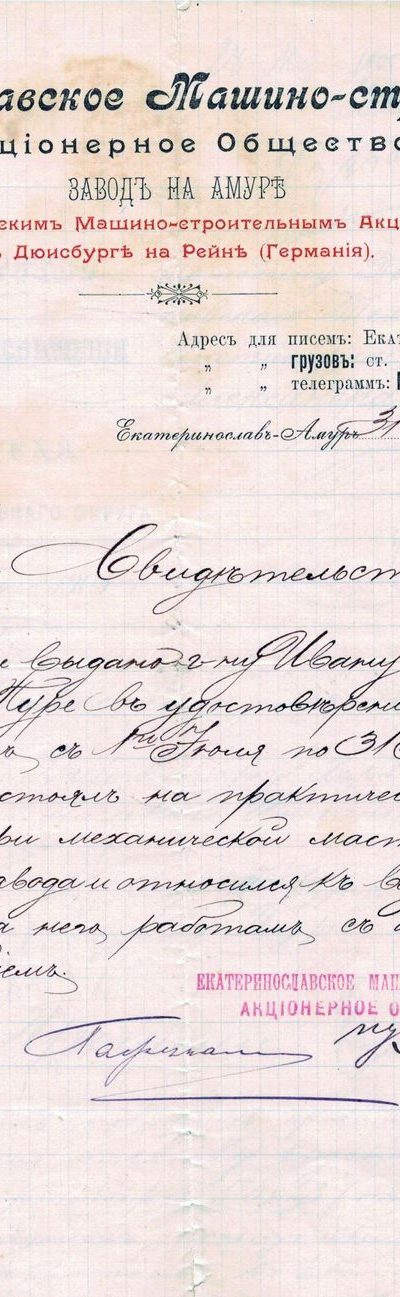 авское Машино-ст
ціонерное Общество
ЗАВОДЪ НА АМУРѢ
скимъ Машино-строительнымъ Акц
ъ Дюисбургѣ на Рейнѣ (Германія).
Адресъ для писемъ: Ека
„ „ грузовъ: ст.
„ „ телеграммъ:
Екатеринославъ-Амуръ 31
Свидѣтельст
е выдано г-ну Ивану
Пуре въ удостовѣрені
съ 1го Іюля по 31
стоялъ на практичес
ри механической маст
авода и относился къ в
а него работамъ съ
іемъ.
ЕКАТЕРИНОСЛАВСКОЕ МАШ
АКЦІОНЕРНОЕ О